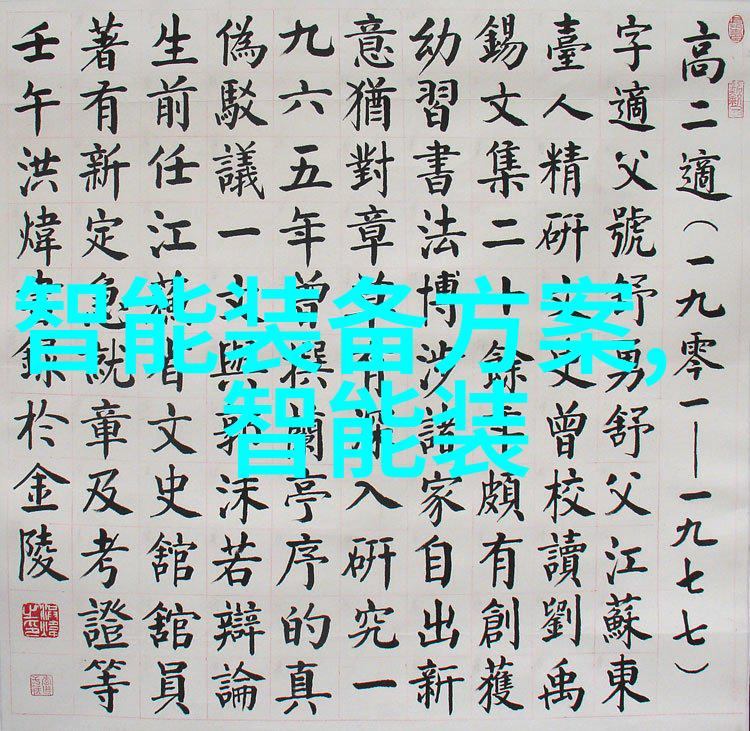 高二適（一九零一—一九七七）
字適父號舒勇舒父江蘇東
臺人精研文史曾校讀劉禹
錫文集二十餘年頗有創獲
幼習書法博涉諸家自出新
意猶對章草有深入研究一
九六五年曾撰蘭亭序的真
偽駁議一文與郭沫若辯論
生前任江蘇省文史舘舘員
著有新定急就章及考證等
壬午洪煒錄扵金陵
智能装备方案,
智能装